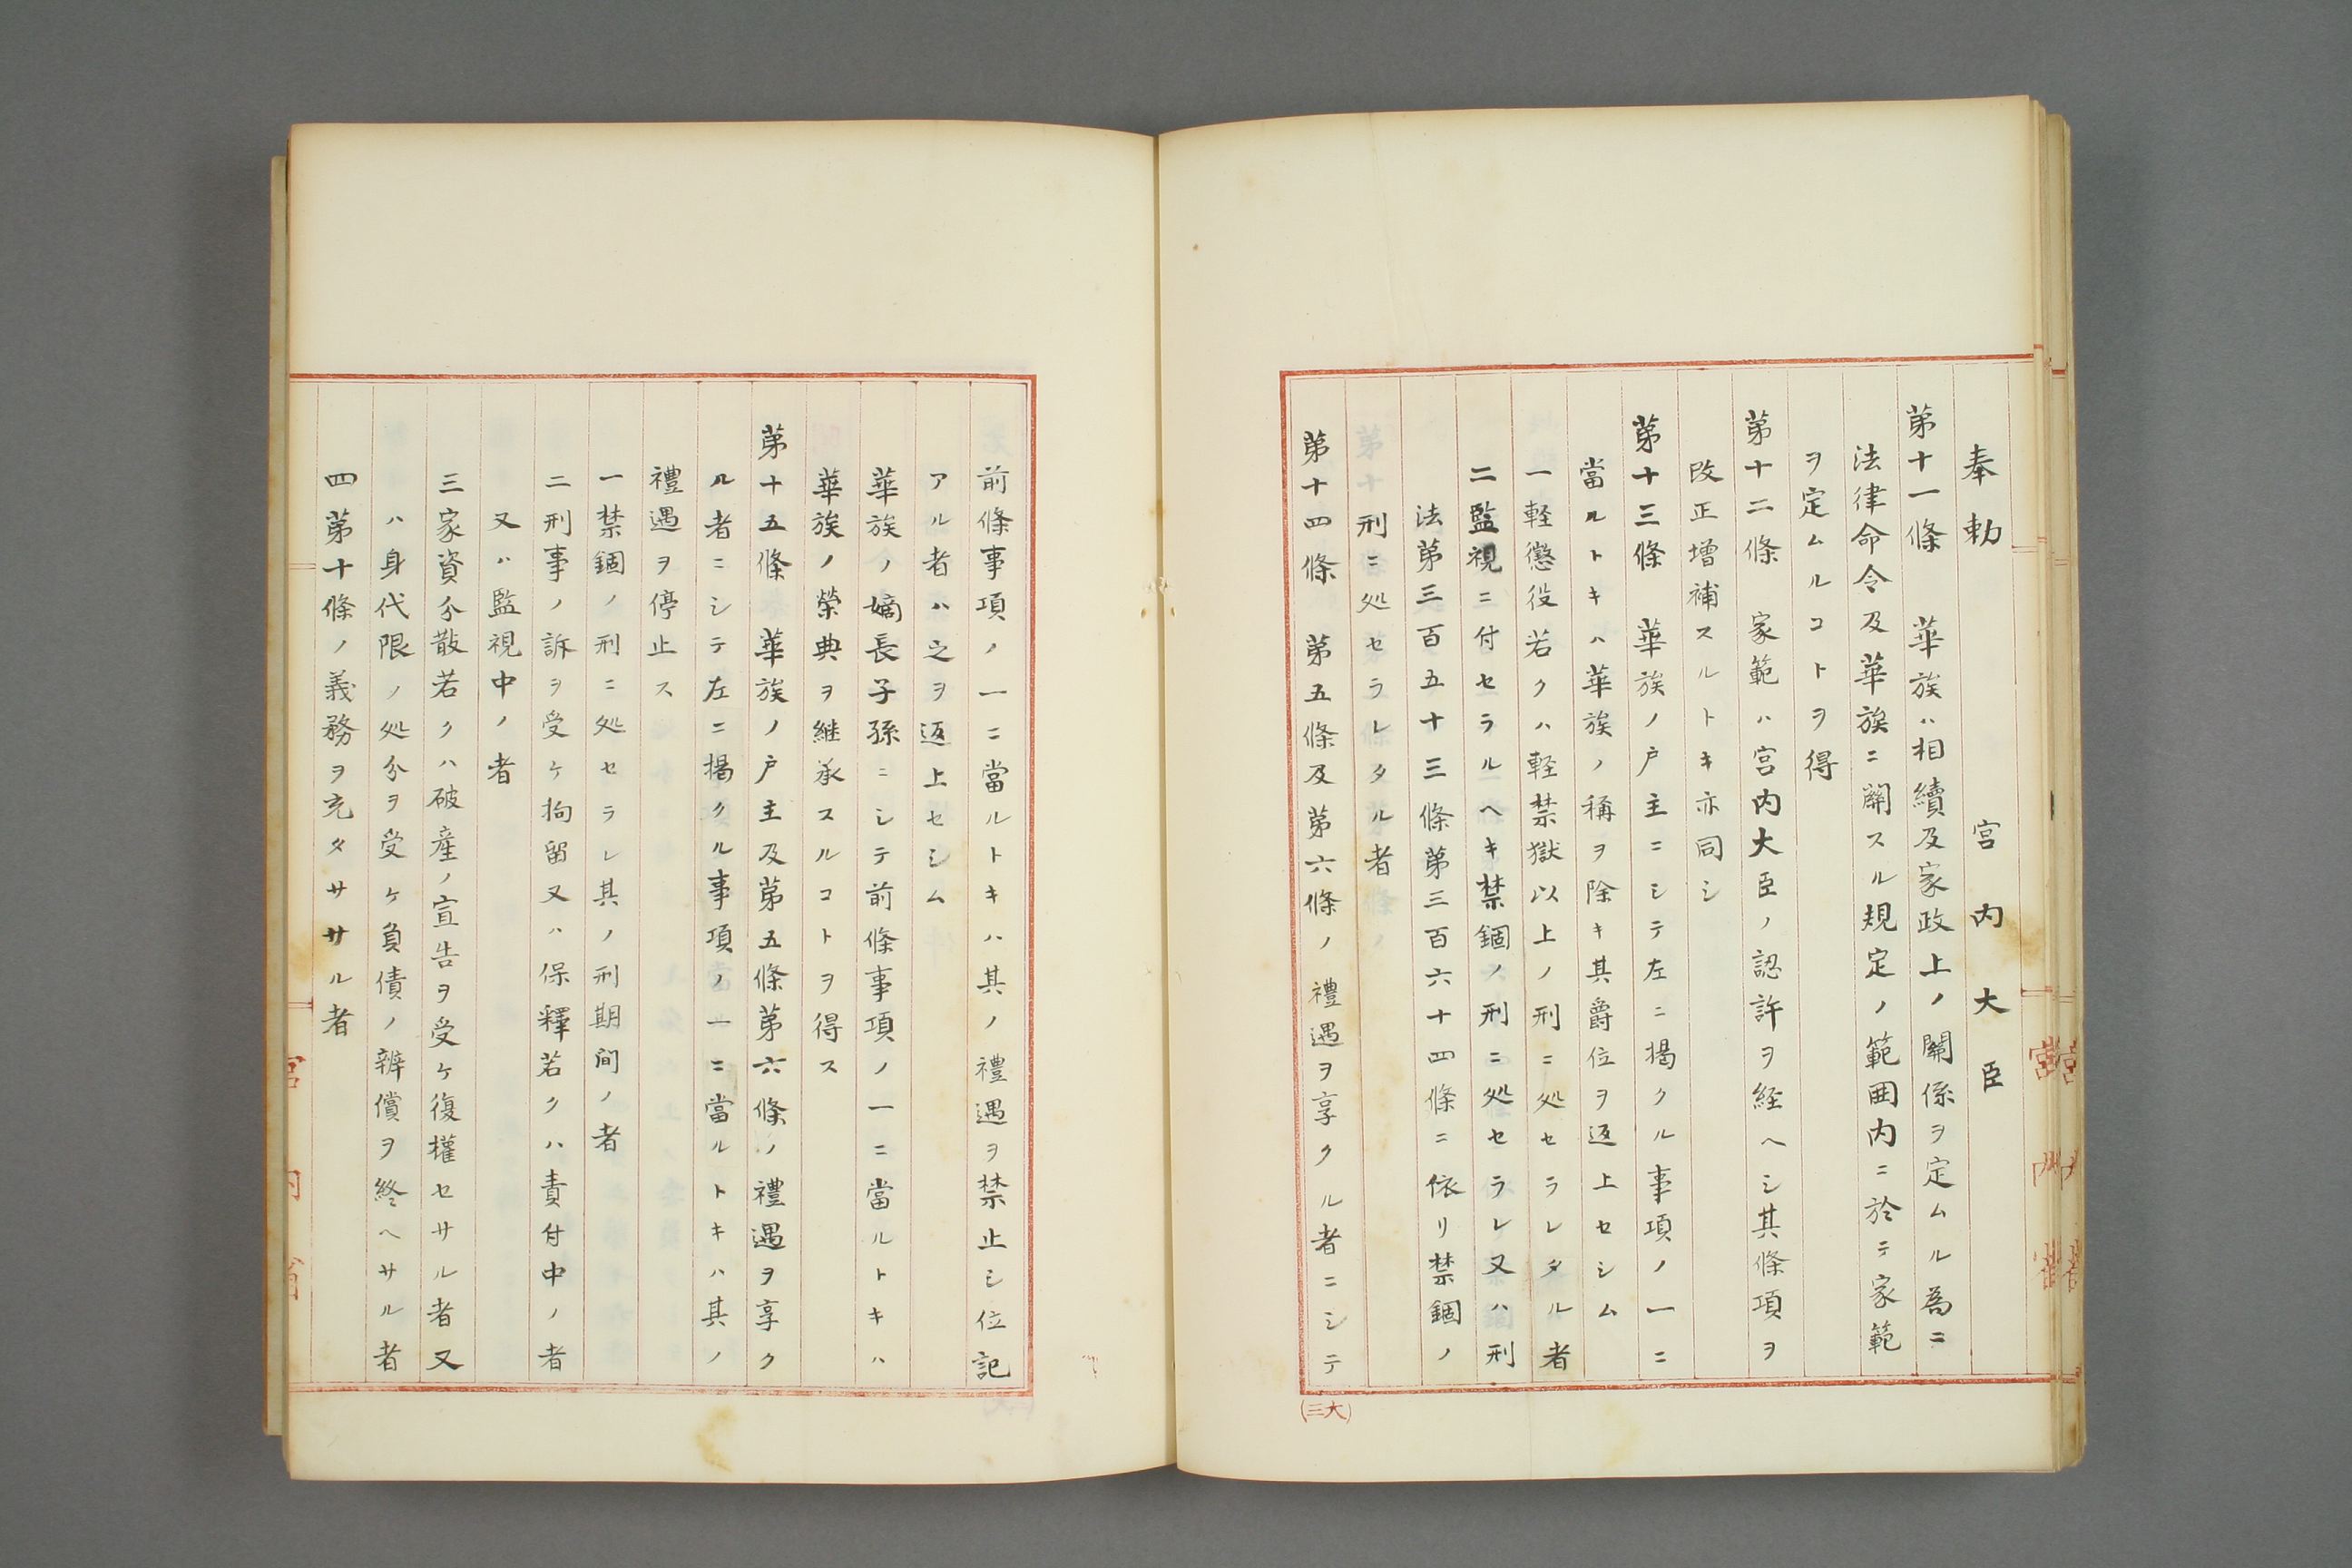 奉勅　宮内大臣
第十一條　華族ハ相續及家政上ノ關係ヲ定ムル為ニ
法律命令及華族ニ關スル規定ノ範囲内ニ於テ家範
ヲ定ムルコトヲ得
第十二條　家範ハ宮内大臣ノ認許ヲ経ヘシ其條項ヲ
改正増補スルトキ亦同シ
第十三條　華族ノ戸主ニシテ左ニ揭クル事項ノ一ニ
當ルトキハ華族ノ稱ヲ除キ其爵位ヲ返上セシム
一軽懲役若クハ軽禁獄以上ノ刑ニ処セラレタル者
二監視ニ付セラルヘキ禁錮ノ刑ニ処セラレ又ハ刑
法第三百五十三條第三百六十四條ニ依リ禁錮ノ
刑ニ処セラレタル者
第十四條　第五條及第六條ノ禮遇ヲ享クル者ニシテ
(大三)
前條事項ノ一ニ當ルトキハ其ノ禮遇ヲ禁止シ位記
アル者ハ之ヲ返上セシム
華族ノ嫡長子孫ニシテ前條事項ノ一ニ當ルトキハ
華族ノ榮典ヲ継承スルコトヲ得ス
第十五條　華族ノ戸主及第五條第六條ノ禮遇ヲ享ク
ル者ニシテ左ニ揭クル事項ノ一ニ當ルトキハ其ノ
禮遇ヲ停止ス
一禁錮ノ刑ニ処セラレ其ノ刑期間ノ者
二刑事ノ訴ヲ受ケ拘留又ハ保釋若クハ責付中ノ者
又ハ監視中ノ者
三家資分散若クハ破産ノ宣告ヲ受ケ復權セサル者又
ハ身代限ノ処分ヲ受ケ負債ノ辨償ヲ終ヘサル者
四第十條ノ義務ヲ充タササル者
宮内省